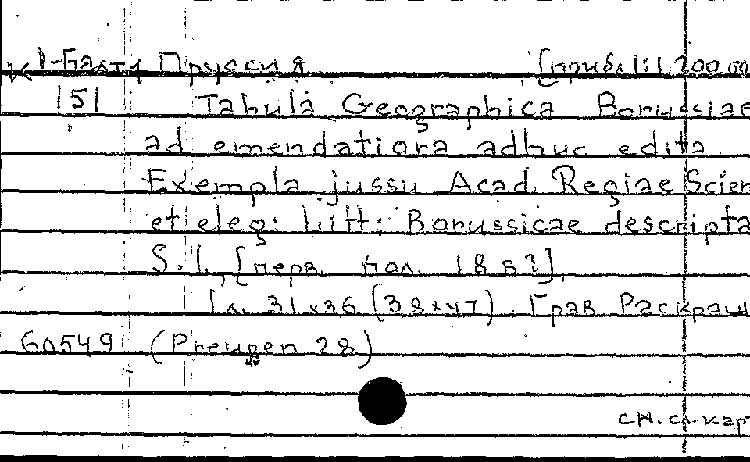 К 1-Балт Пруссия [прибл. 1:1.200.00
151 Tabula Geographica Borussiae
ad emendatiora adhuc edita
Exempla jussu Acad. Regiae Scien
et eleg: litt: Borussicae descripta
S. l., [перв. пол. 18 в?],
1 л. 31x36 (38x47). Грав. Раскраш
60549 (Preußen 28)
см. сл. кар